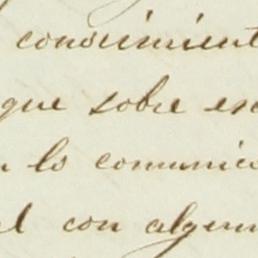 conocimient
que sobre es
n lo comunica
el con algun